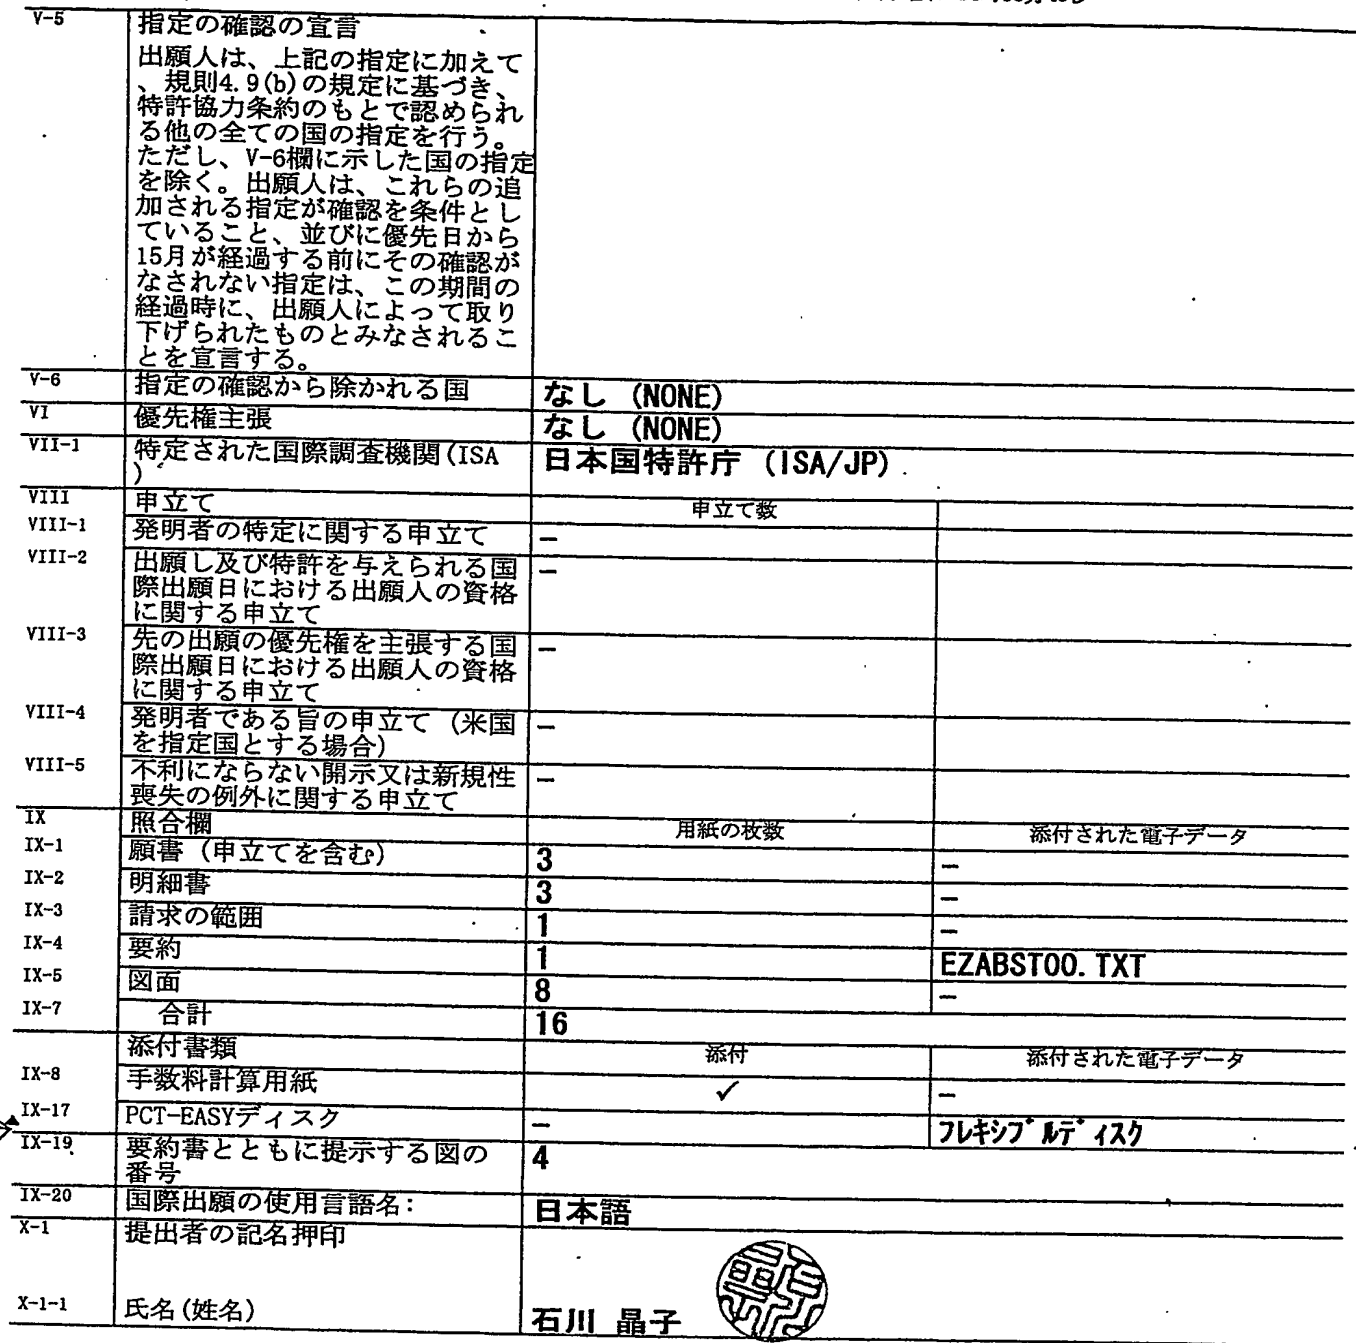 V-5 指定の確認の宣言
出願人は、上記の指定に加えて
、規則4.9(b)の規定に基づき、
特許協力条約のもとで認められ
る他の全ての国の指定を行う。
ただし、V-6欄に示した国の指定
を除く。出願人は、これらの追
加される指定が確認を条件とし
ていること、並びに優先日から
15月が経過する前にその確認が
なされない指定は、この期間の
経過時に、出願人によって取り
下げられたものとみなされるこ
とを宣言する。
V-6 指定の確認から除かれる国 なし (NONE)
VI 優先権主張 なし (NONE)
VII-1 特定された国際調査機関(ISA 日本国特許庁 (ISA/JP)
)
VIII 申立て 申立て数
VIII-1 発明者の特定に関する申立て -
VIII-2 出願し及び特許を与えられる国 -
際出願日における出願人の資格
に関する申立て
VIII-3 先の出願の優先権を主張する国 -
際出願日における出願人の資格
に関する申立て
VIII-4 発明者である旨の申立て (米国 -
を指定国とする場合)
VIII-5 不利にならない開示又は新規性 -
喪失の例外に関する申立て
IX 照合欄 用紙の枚数 添付された電子データ
IX-1 願書 (申立てを含む) 3 -
IX-2 明細書 3 -
IX-3 請求の範囲 1 -
IX-4 要約 1 EZABST00.TXT
IX-5 図面 8 -
IX-7 合計 16
添付書類 添付 添付された電子データ
IX-8 手数料計算用紙 ✓ -
IX-17 PCT-EASYディスク - フレキシブルディスク
IX-19 要約書とともに提示する図の 4
番号
IX-20 国際出願の使用言語名: 日本語
X-1 提出者の記名押印
X-1-1 氏名(姓名) 石川 晶子